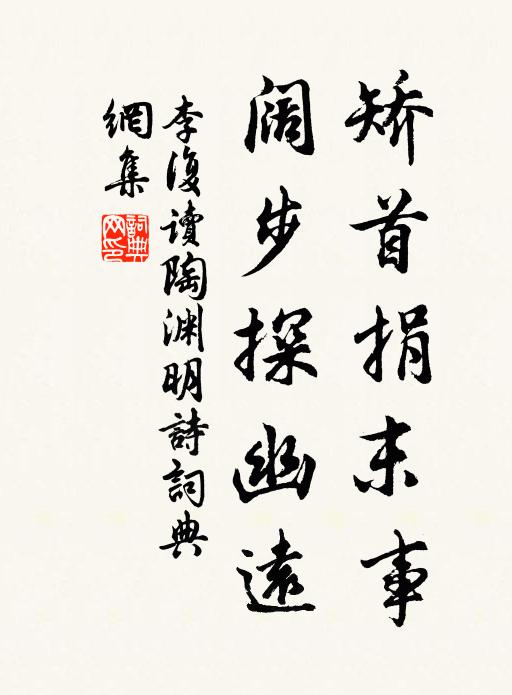 矫首捐末事
阔步探幽遠
李復讀陶渊明詩詞典
網集
詞典網印